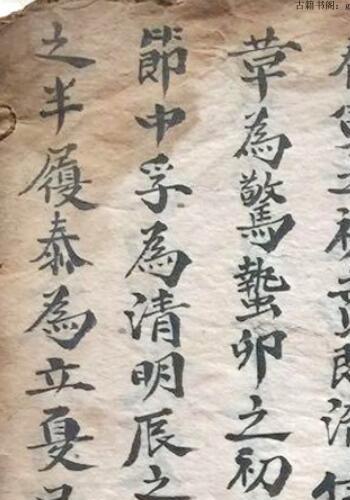 古籍书阁：g
之初賁既濟
革為驚蟄卯之初
節中孚為清明辰之
之半履泰為立夏